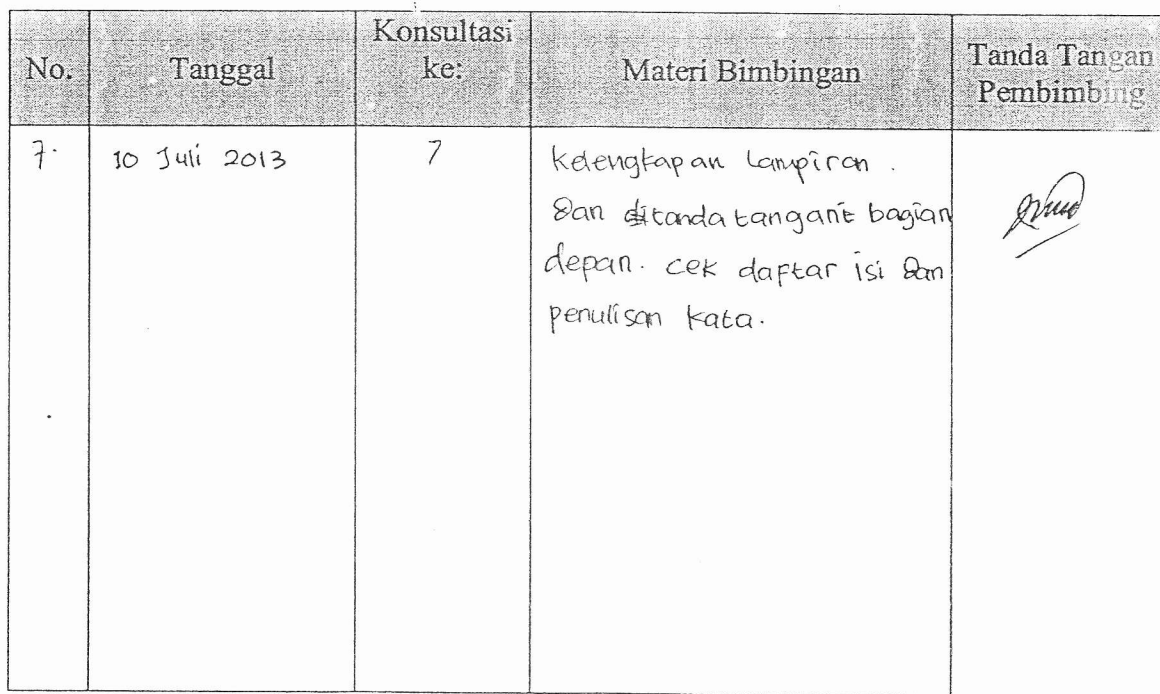 No. Tanggal Konsultasi ke: Materi Bimbingan Tanda Tangan Pembimbing
7. 10 Juli 2013 7 kelengkapan lampiran.
Dan ditanda tangani bagian
depan. cek daftar isi dan
penulisan kata.